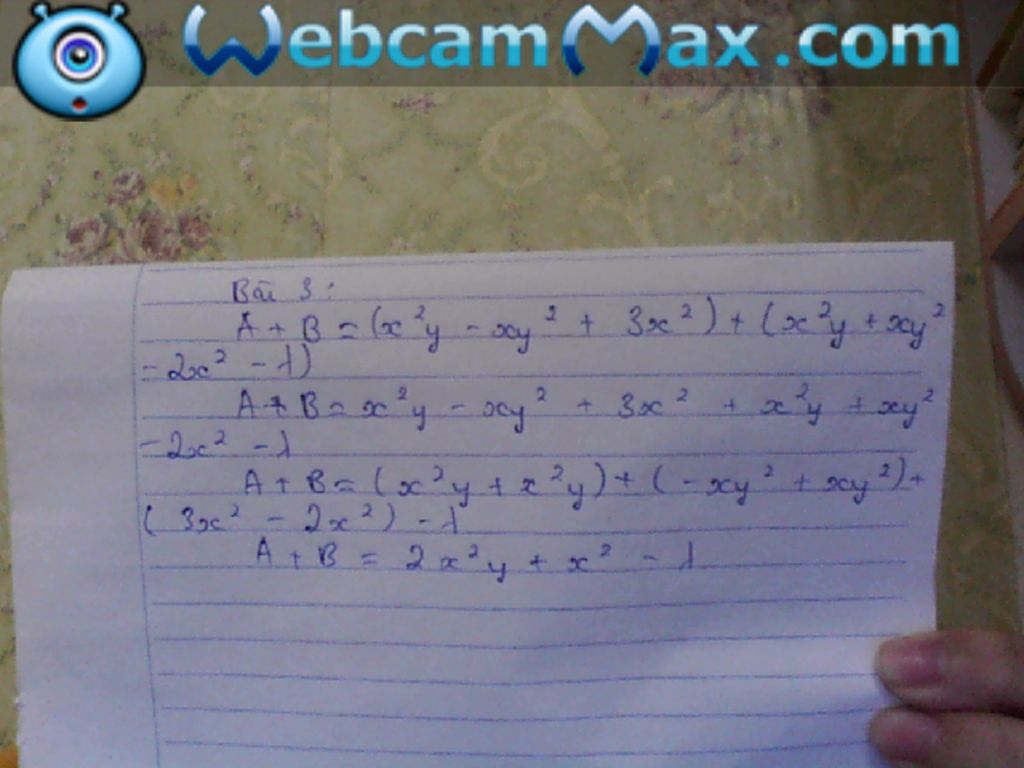 WebcamMax.com
Bài 3:
A + B = (x²y - xy² + 3x²) + (x²y + xy²
- 2x² - 1)
A + B = x²y - xy² + 3x² + x²y + xy²
- 2x² - 1
A + B = (x²y + x²y) + (-xy² + xy²) +
(3x² - 2x²) - 1
A + B = 2x²y + x² - 1